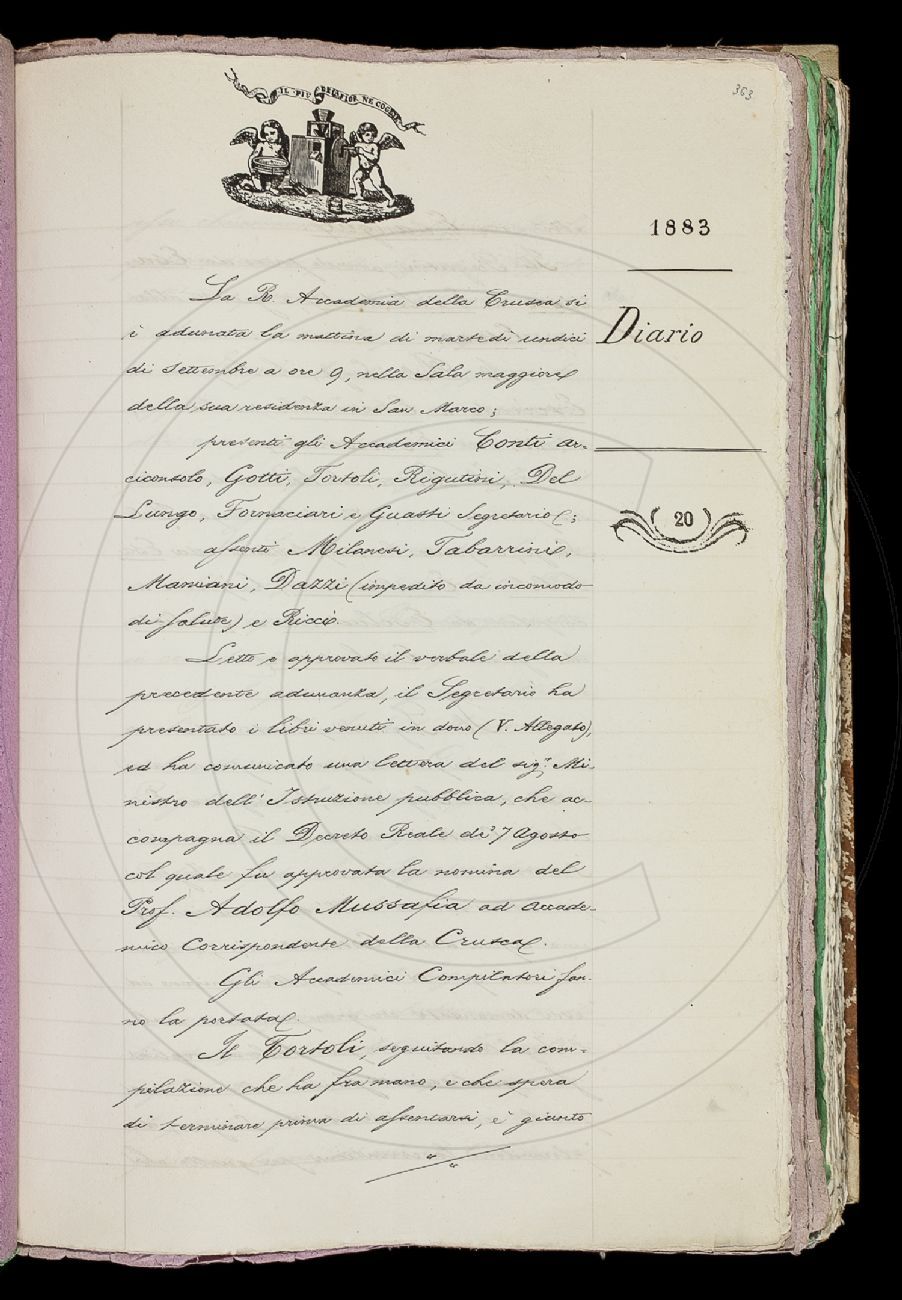 363
IL PIÙ BEL FIOR NE COGLIE
1883
Diario
20
La R. Accademia della Crusca si
è adunata la mattina di martedì undici
di Settembre a ore 9, nella Sala maggiore
della sua residenza in San Marco;
presenti gli Accademici Conti Ar-
ciconsolo, Gotti, Tortoli, Rigutini, Del
Lungo, Fornaciari e Guasti Segretario;
assenti Milanesi, Tabarrini,
Mamiani, Dazzi (impedito da incomodo
di salute) e Ricci.
Letto e approvato il verbale della
precedente adunanza, il Segretario ha
presentato i libri venuti in dono (V. Allegato),
ed ha comunicato una lettera del sigr. Mi-
nistro dell'Istruzione pubblica, che ac-
compagna il Decreto Reale di' 7 Agosto
col quale fu approvata la nomina del
Prof. Adolfo Mussafia ad Accade-
mico Corrispondente della Crusca.
Gli Accademici Compilatori fan-
no la portata.
Il Tortoli, seguitando la com-
pilazione che ha fra mano, e che spera
di terminare prima di assentarsi, è giunto